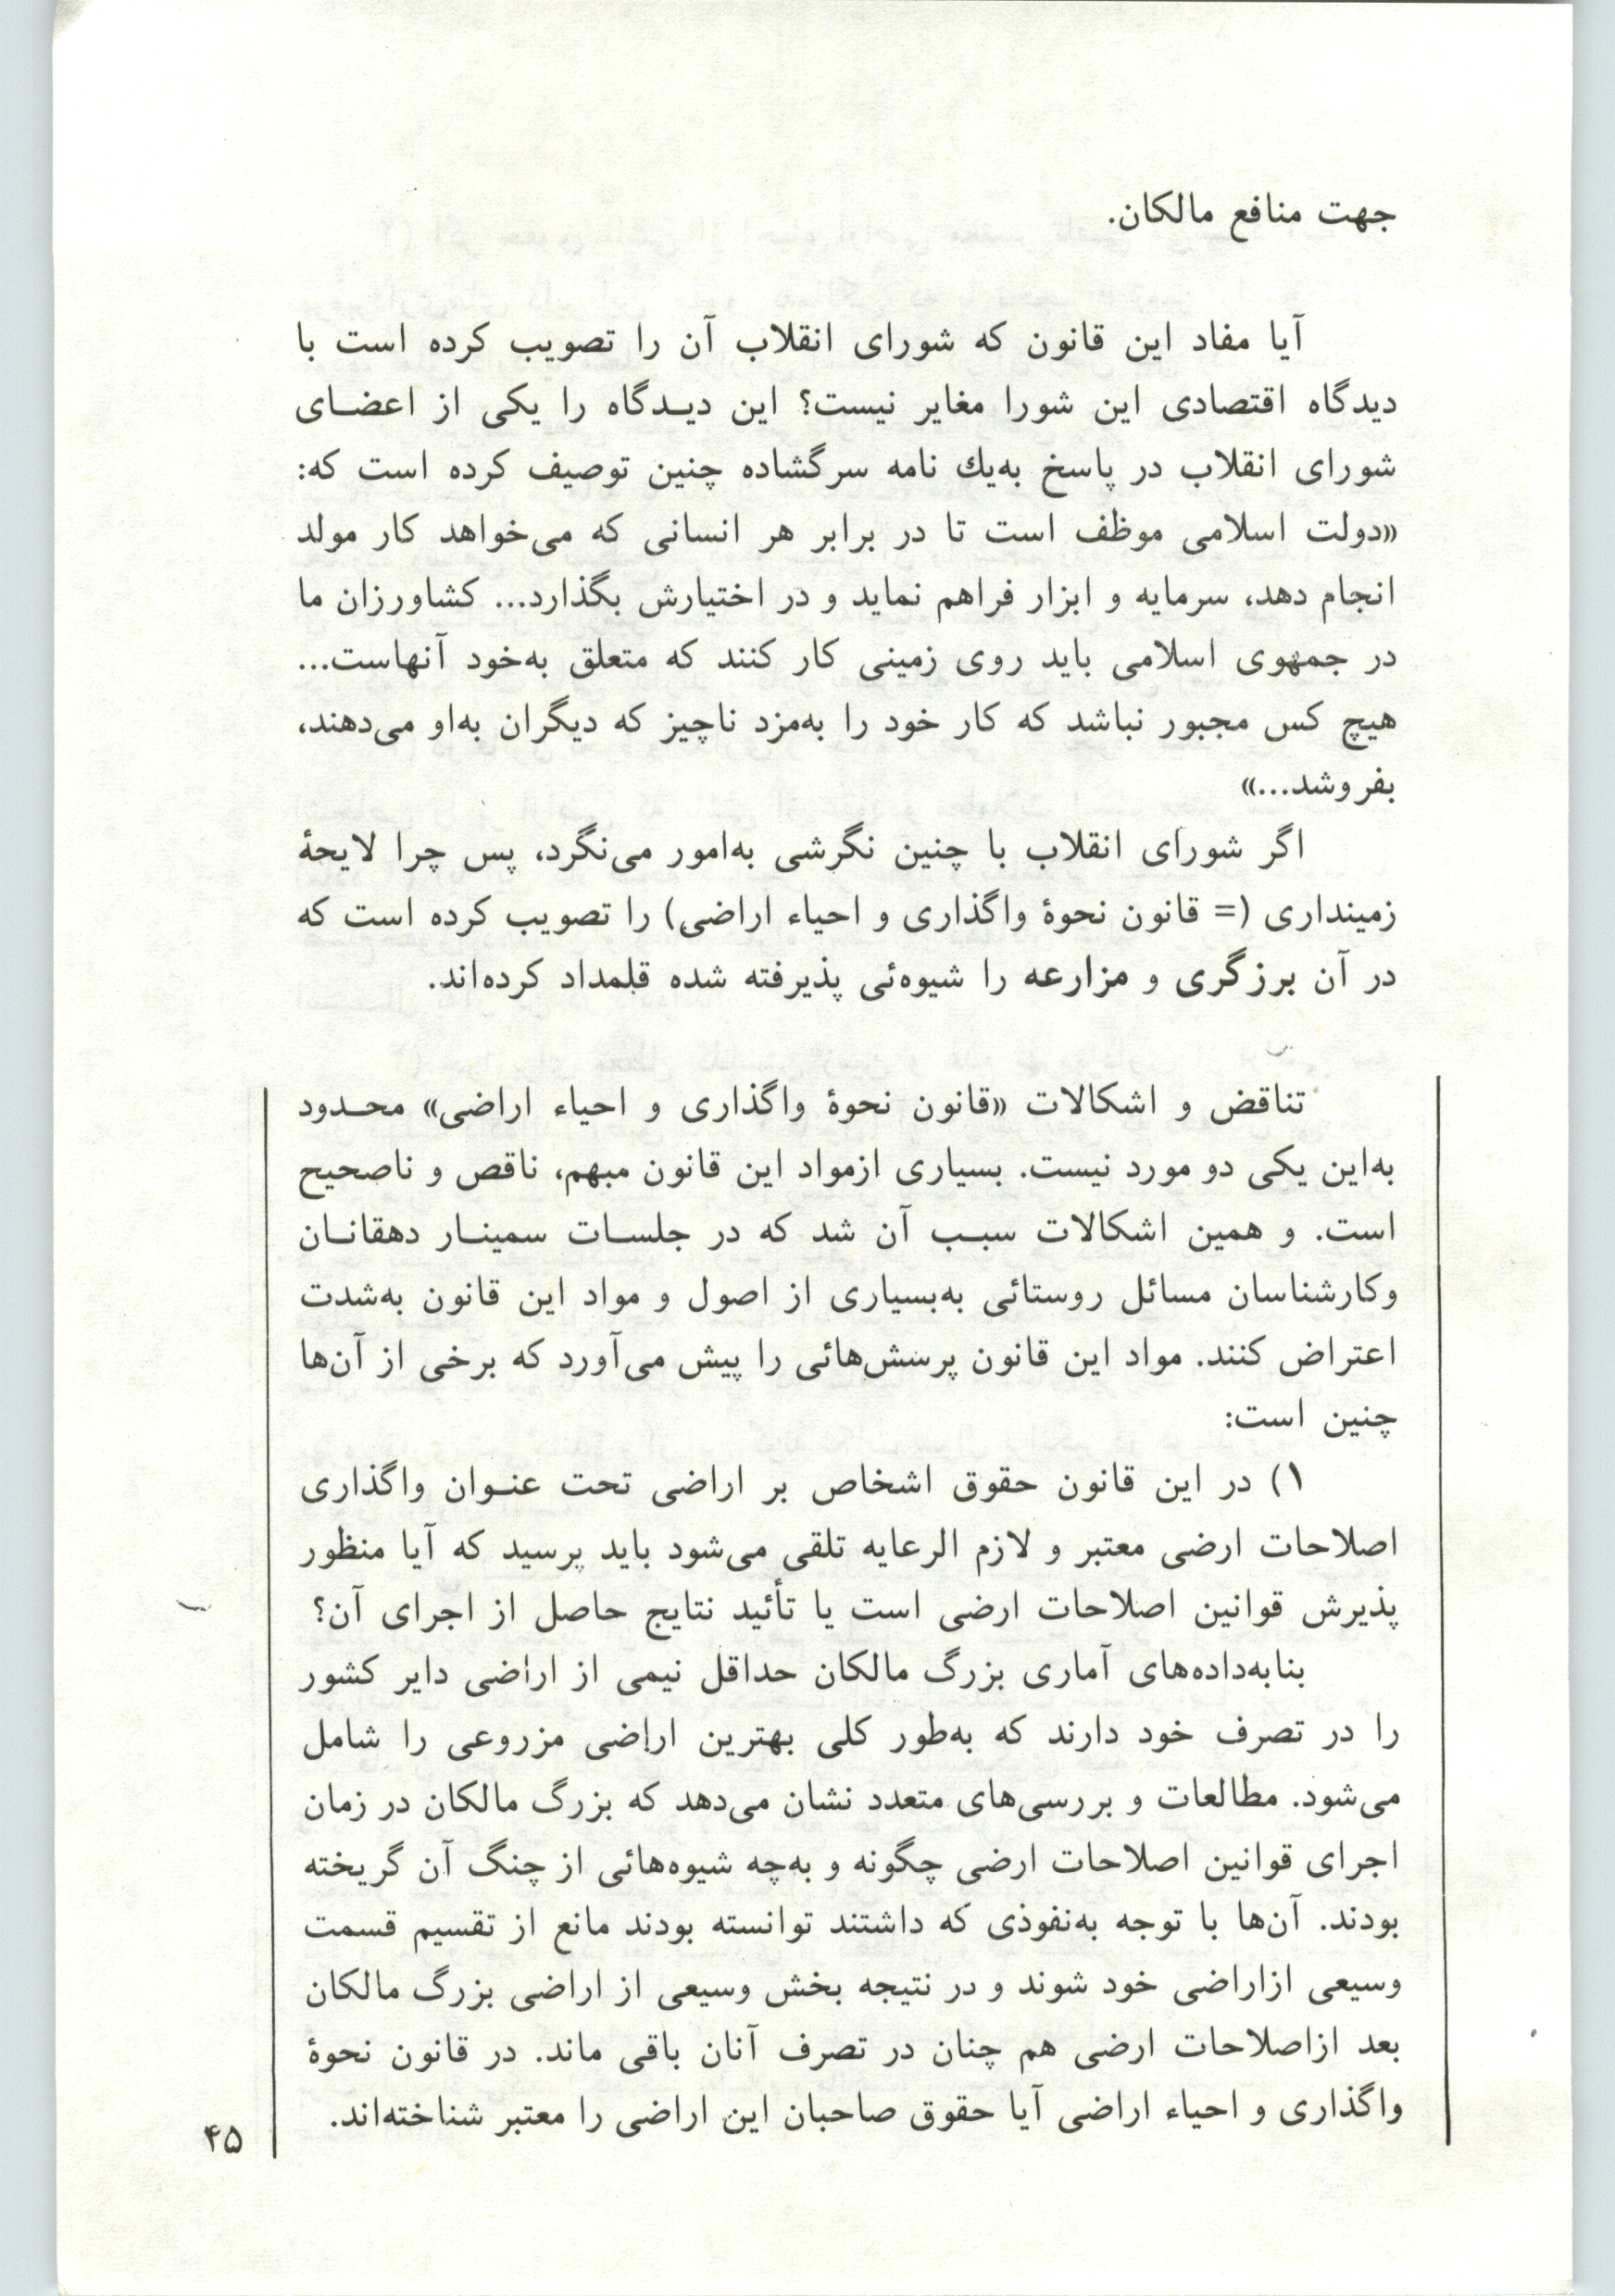 جهت منافع مالکان.
آیا مفاد این قانون که شورای انقلاب آن را تصویب کرده است با
دیدگاه اقتصادی این شورا مغایر نیست؟ این دیـدگاه را یکی از اعضـای
شورای انقلاب در پاسخ به‌یك نامه سرگشاده چنین توصیف کرده است که:
«دولت اسلامی موظف است تا در برابر هر انسانی که می‌خواهد کار مولد
انجام دهد، سرمایه و ابزار فراهم نماید و در اختیارش بگذارد... کشاورزان ما
در جمهوی اسلامی باید روی زمینی کار کنند که متعلق به‌خود آنهاست...
هیچ کس مجبور نباشد که کار خود را به‌مزد ناچیز که دیگران به‌او می‌دهند،
بفروشد...»
اگر شورای انقلاب با چنین نگرشی به‌امور می‌نگرد، پس چرا لایحهٔ
زمینداری (= قانون نحوهٔ واگذاری و احیاء اراضی) را تصویب کرده است که
در آن برزگری و مزارعه را شیوه‌ئی پذیرفته شده قلمداد کرده‌اند.
تناقض و اشکالات «قانون نحوهٔ واگذاری و احیاء اراضی» محـدود
به‌این یکی دو مورد نیست. بسیاری ازمواد این قانون مبهم، ناقص و ناصحیح
است. و همین اشکالات سبـب آن شد که در جلسـات سمینـار دهقانـان
وکارشناسان مسائل روستائی به‌بسیاری از اصول و مواد این قانون به‌شدت
اعتراض کنند. مواد این قانون پرسش‌هائی را پیش می‌آورد که برخی از آن‌ها
چنین است:
۱) در این قانون حقوق اشخاص بر اراضی تحت عنـوان واگذاری
اصلاحات ارضی معتبر و لازم الرعایه تلقی می‌شود باید پرسید که آیا منظور
پذیرش قوانین اصلاحات ارضی است یا تأئید نتایج حاصل از اجرای آن؟
بنابه‌داده‌های آماری بزرگ مالکان حداقل نیمی از اراضی دایر کشور
را در تصرف خود دارند که به‌طور کلی بهترین اراضی مزروعی را شامل
می‌شود. مطالعات و بررسی‌های متعدد نشان می‌دهد که بزرگ مالکان در زمان
اجرای قوانین اصلاحات ارضی چگونه و به‌چه شیوه‌هائی از چنگ آن گریخته
بودند. آن‌ها با توجه به‌نفوذی که داشتند توانسته بودند مانع از تقسیم قسمت
وسیعی ازاراضی خود شوند و در نتیجه بخش وسیعی از اراضی بزرگ مالکان
بعد ازاصلاحات ارضی هم چنان در تصرف آنان باقی ماند. در قانون نحوهٔ
واگذاری و احیاء اراضی آیا حقوق صاحبان این اراضی را معتبر شناخته‌اند.
۴۵